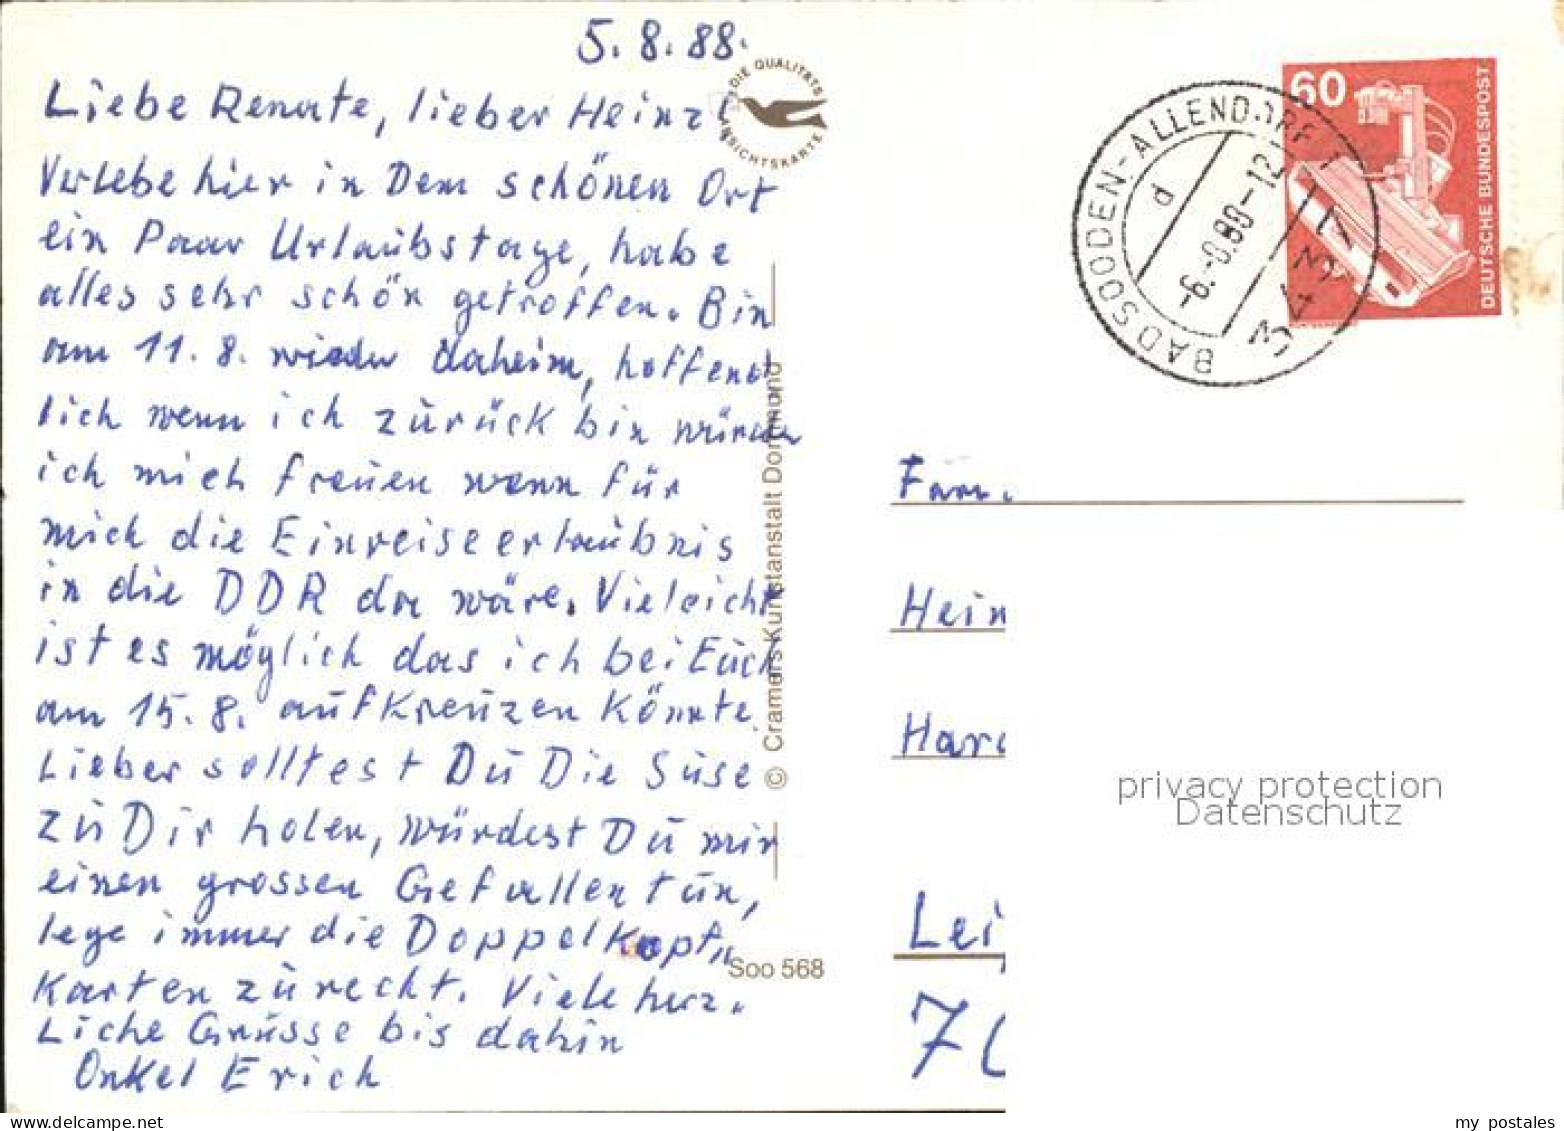 5.8.88.
Liebe Renate, lieber Heinz!
Verlebe hier in Dem schönen Ort
ein Paar Urlaubstage, habe
alles sehr schön getroffen. Bin
am 11.8. wieder daheim, hoffent
lich wenn ich zurück bin würde
ich mich freuen wenn für
mich die Einreiseerlaubnis
in die DDR da wäre. Vieleicht
ist es möglich das ich bei Euch
am 15.8. aufkreuzen könnte.
Lieber solltest Du Die Suse
zu Dir holen, würdest Du mir
einen grossen Gefallen tun,
lege immer die Doppelkopf
Karten zurecht. Viele herz.
Liche Grüsse bis dahin
Onkel Erich
DIE QUALITÄTS
ANSICHTSKARTE
© Cramers Kunstanstalt Dortmund
Soo 568
BAD SOODEN-ALLENDORF 1
d
-6.-8.88-12
3437
60
DEUTSCHE BUNDESPOST
Fam.
Hein
Har
Lei
70
privacy protection
Datenschutz
my postales